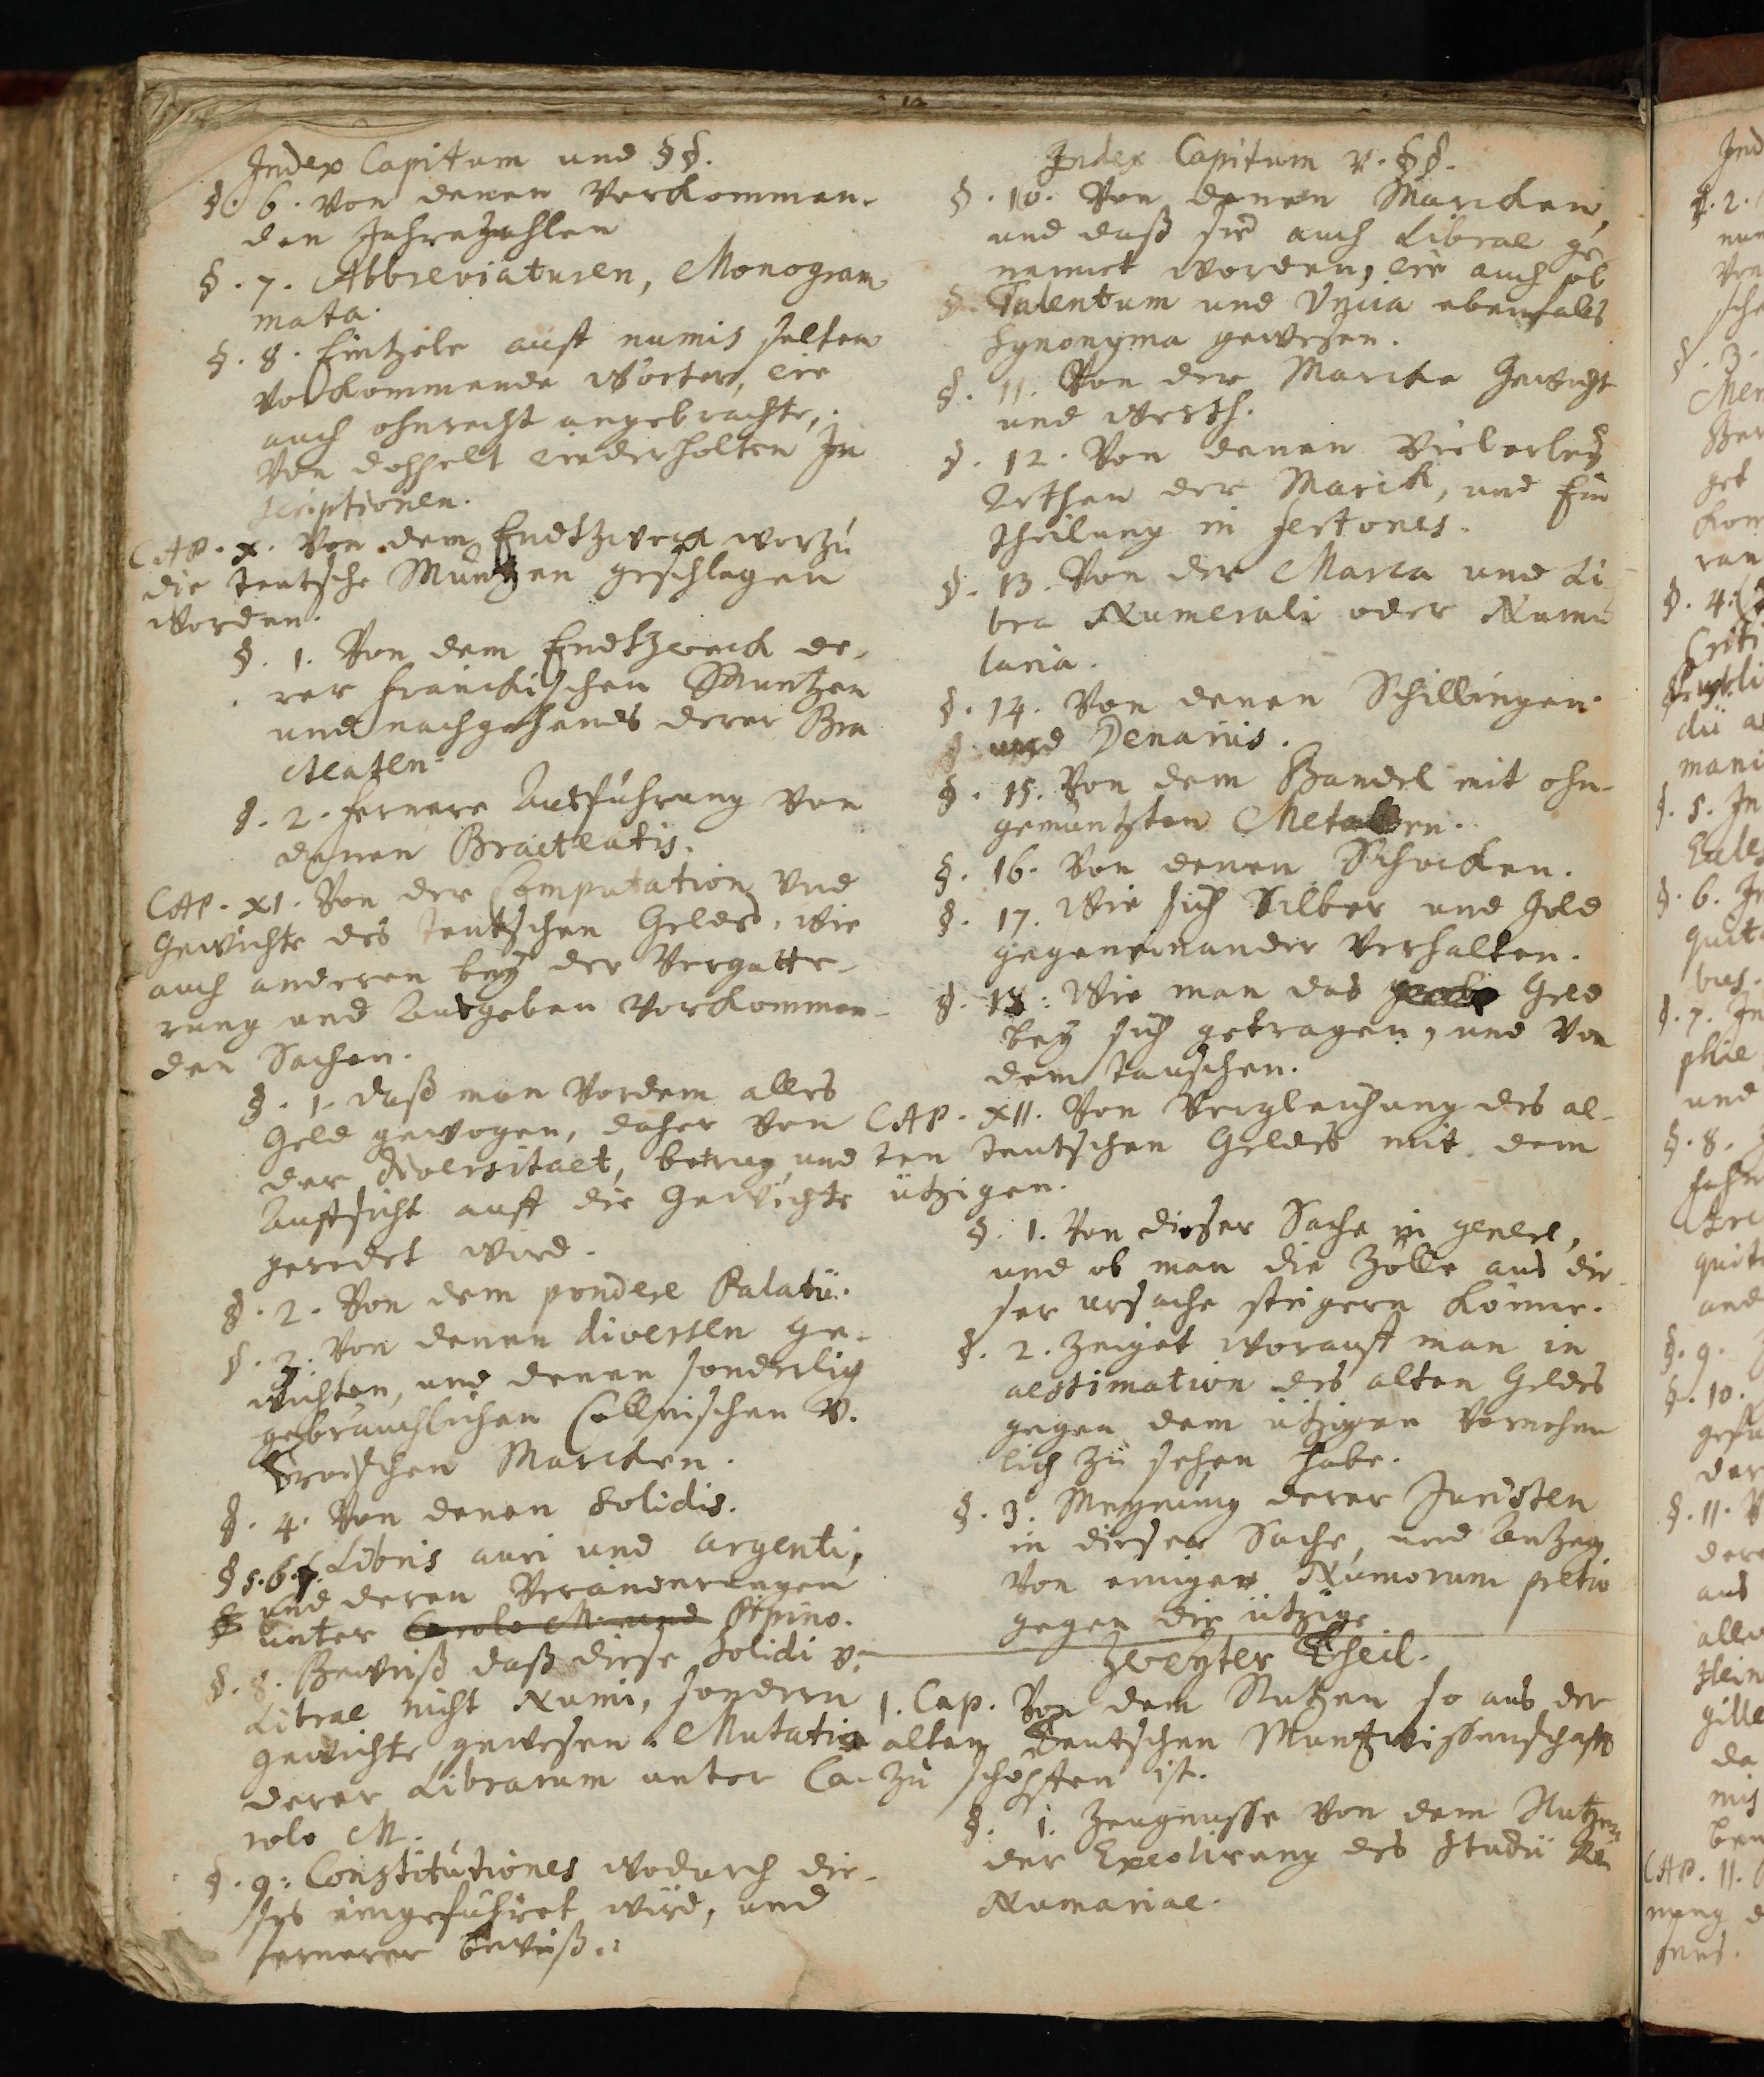 Index Capitum und §§.
§. 6. von denen Vorkommen-
den Jahrzahlen
§. 7. Abbreviaturen, Monogram
mata.
§. 8. Eintzele auff numis selten
vorkommende Wörter, wie
auch ohnrecht angebrachte,
Von doppelt wiederholten In
scriptionen.
CAP. X. Von dem Endtzweck worzu
die teutsche Müntzen geschlagen
worden.
§. 1. Von dem Endtzweck de-
rer Fränckischen Müntzen
und nachgehends derer Bra
cteaten.
§. 2. fernere Ausführung von
denen Bracteatis.
CAP. XI. Von der Computation und
Gewichte des teutschen Geldes, wie
auch anderen bey der Vergatte-
rung und Ausgeben vorkommen-
den Sachen.
§. 1. daß man vordem alles
Geld gewogen, daher von
der diversitaet, betrug und
Auffsicht auff die Gewichte
geredet wird.
§. 2. Von dem pondere Palatii.
§. 3. Von denen diversen Ge-
wichten, und denen sonderlich
gebräuchlichen Cöllnischen v.
Marcken.
§. 4. Von denen Solidis.
§ 5. 6. 7. Libris auri und argenti,
und deren Veränderungen
unter Carolo M. und Pipino.
§. 8. Beweiß daß diese Solidi v.
Librae nicht Numi, sondern
gewichte gewesen. Mutatio
derer Librarum unter Ca-
rolo M.
§. 9. Constitutiones wodurch die-
ses eingeführet wird, und
fernerer Beweiß.
Index Capitum v. §§.
§. 10. Von denen Marcken,
und daß sie auch Librae ge
nennet worden, wie auch ob
§. Talentum und Uncia ebenfalls
Synonyma gewesen.
§. 11. Von der Marcke Gewicht
und Werth.
§. 12. Von denen vielerley
Arthen der Marck, und Ein
theilung in fertones.
§. 13. Von der Marca und Li
bra Numerali oder Numu
laria.
§. 14. Von denen Schillingen.
§. und Denariis.
§. 15. Von dem Handel mit ohn-
gemüntzten Metallen.
§. 16. Von denen Schocken.
§. 17. Wie sich Silber und Gold
gegeneinander verhalten.
§. 18. Wie man das Geld
bey sich getragen, und Von
dem tauschen.
CAP. XII. Von Vergleichung des al-
ten teutschen Geldes mit dem
itzigen.
§. 1. Von dieser Sache in genere,
und ob man die Zölle aus die-
ser ursache steigern könne.
§. 2. Zeiget worauff man in
aestimation des alten Geldes
gegen dem itzigen vornehm
lich zu sehen habe.
§. 3. Meynung derer Juristen
in dieser Sache, und Anzeig
von einiger Numorum pretio
gegen die itzige
Zweyter Theil.
1. Cap. Von dem Nutzen so aus der
alten Teutschen Müntzwissenschafft
zu schöpffen ist.
§. 1. Zeugnusse von dem Nutzen
der Excolirung des Studii Rei
Numariae.